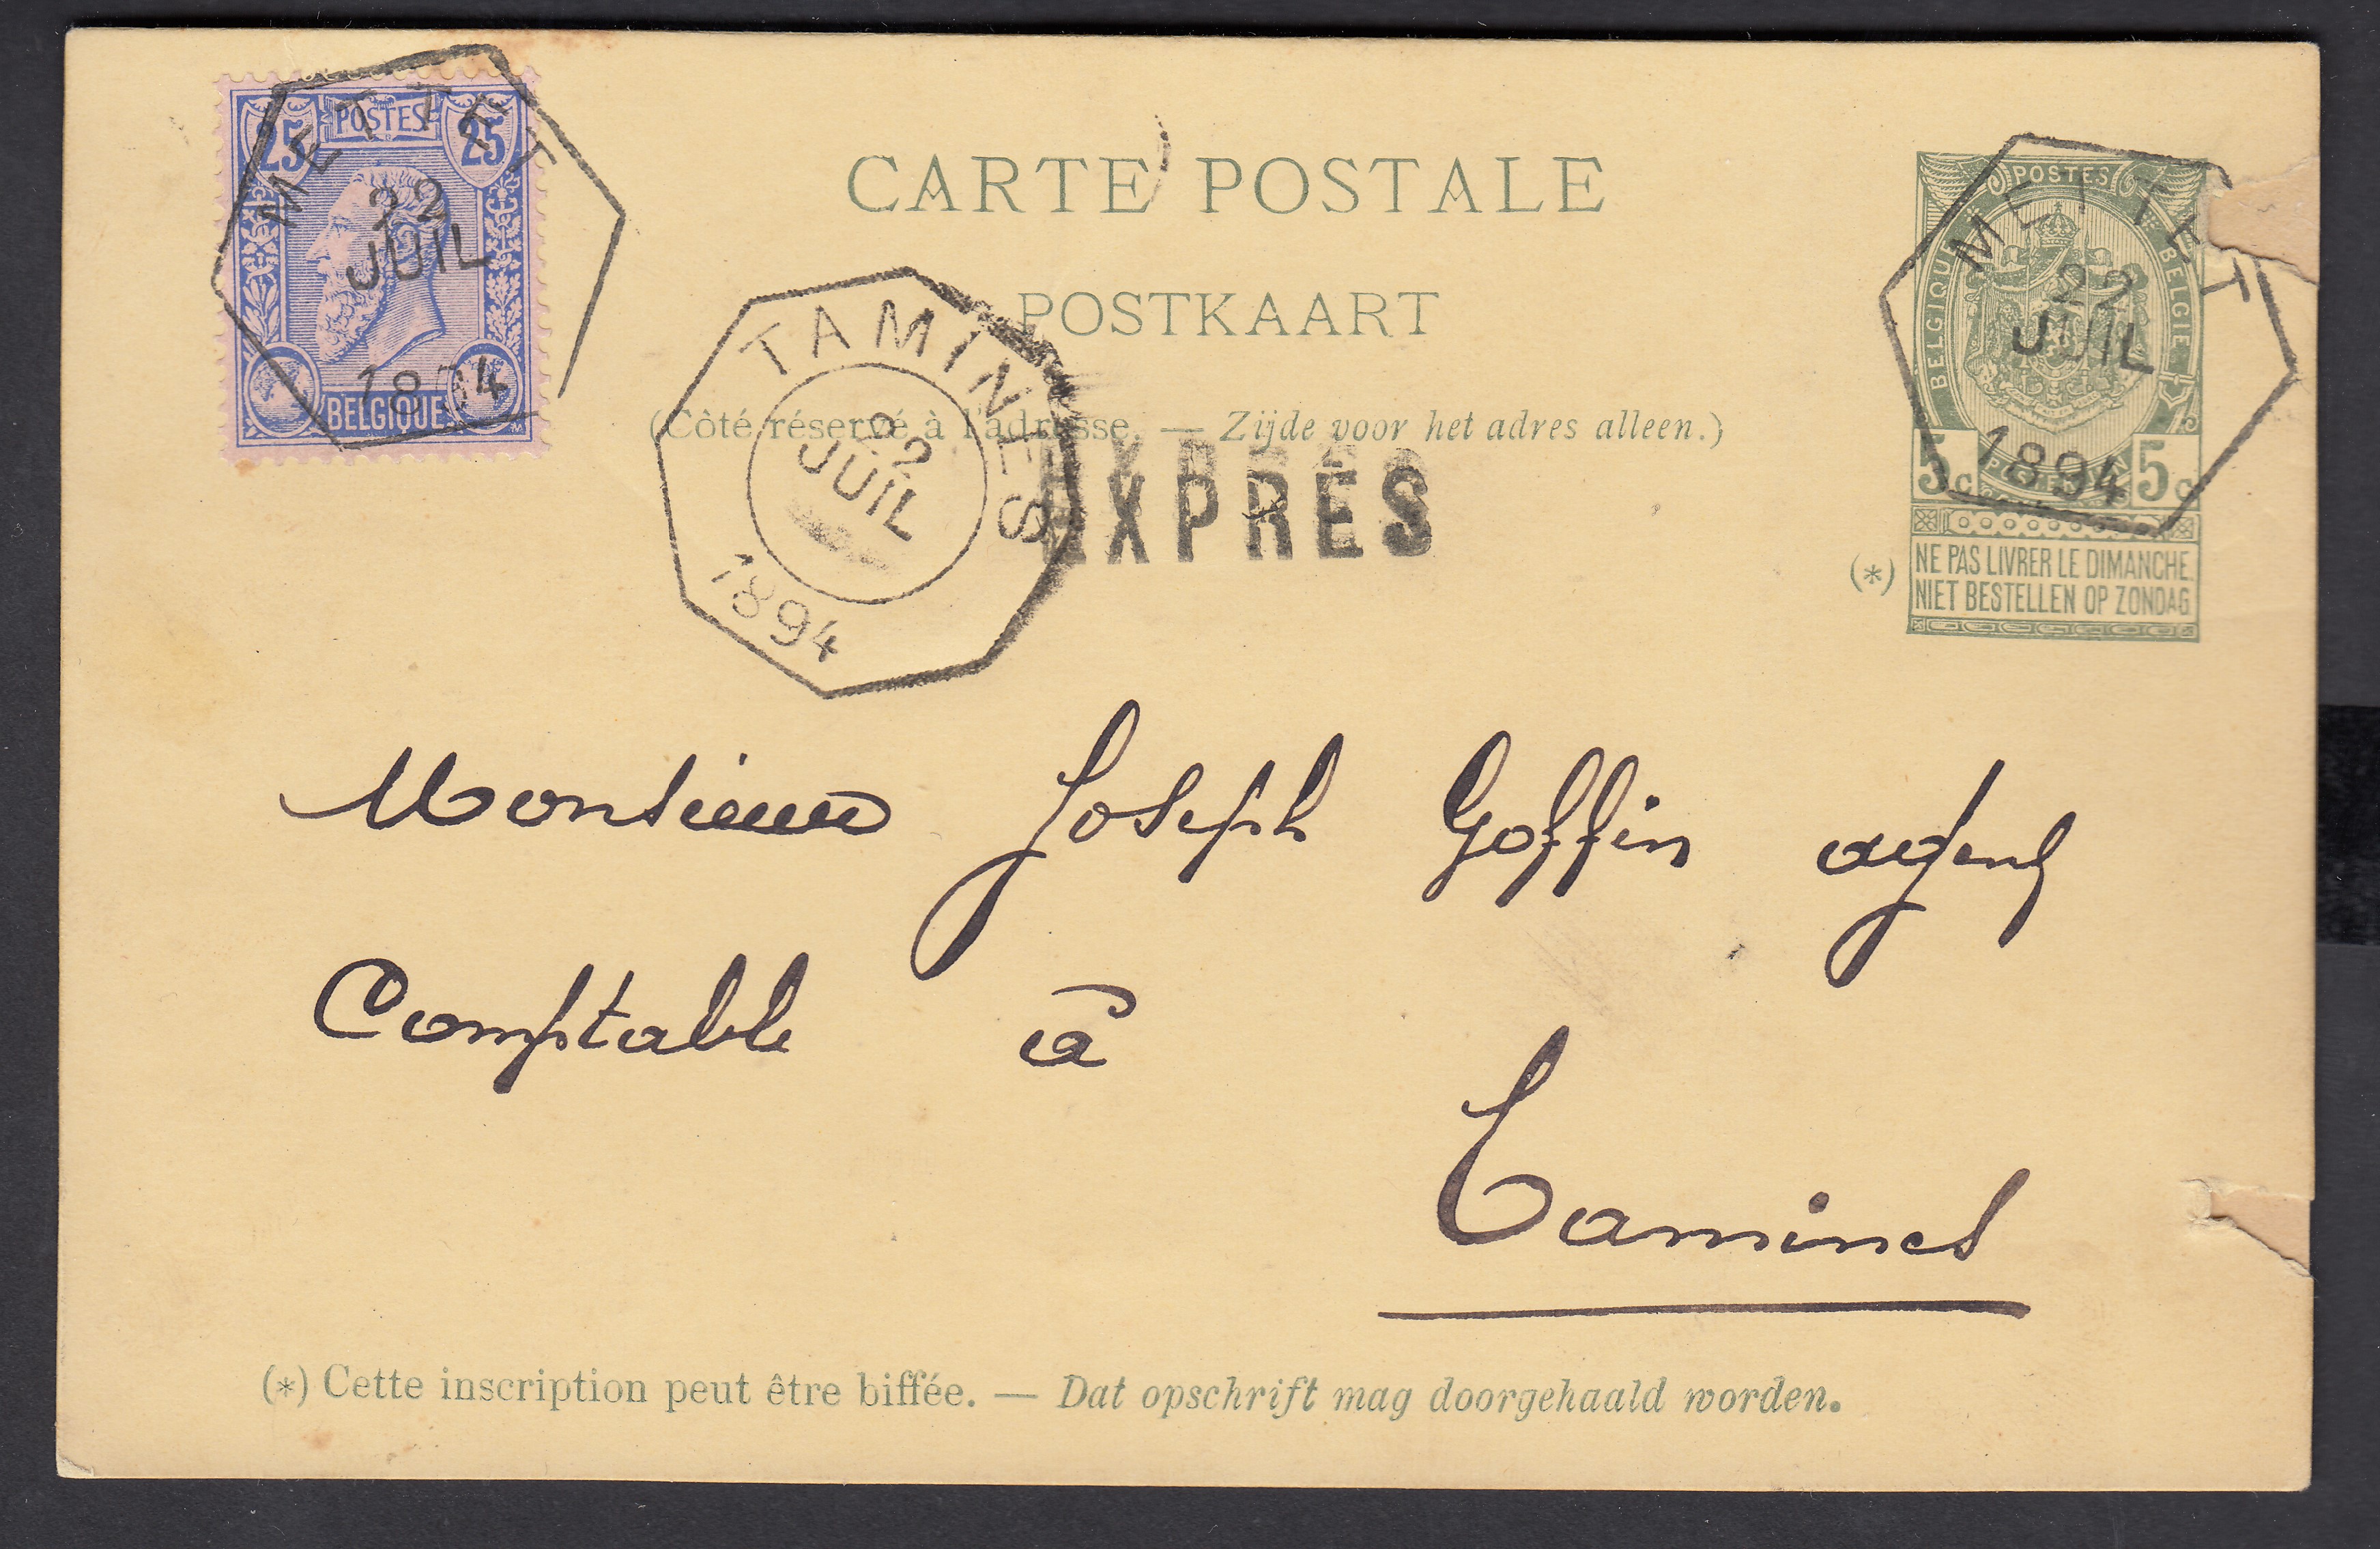 25 POSTES 25
BELGIQUE
METTET
22
JUIL
1894
CARTE POSTALE
POSTKAART
(Côté réservé à l'adresse. — Zijde voor het adres alleen.)
TAMINES
22
JUIL
1894
EXPRES
POSTES
BELGIQUE BELGIE
5c 5c
METTET
22
JUIL
1894
(*) NE PAS LIVRER LE DIMANCHE
NIET BESTELLEN OP ZONDAG
Monsieur Joseph Goffin agent
Comptable à
Tamines
(*) Cette inscription peut être biffée. — Dat opschrift mag doorgehaald worden.